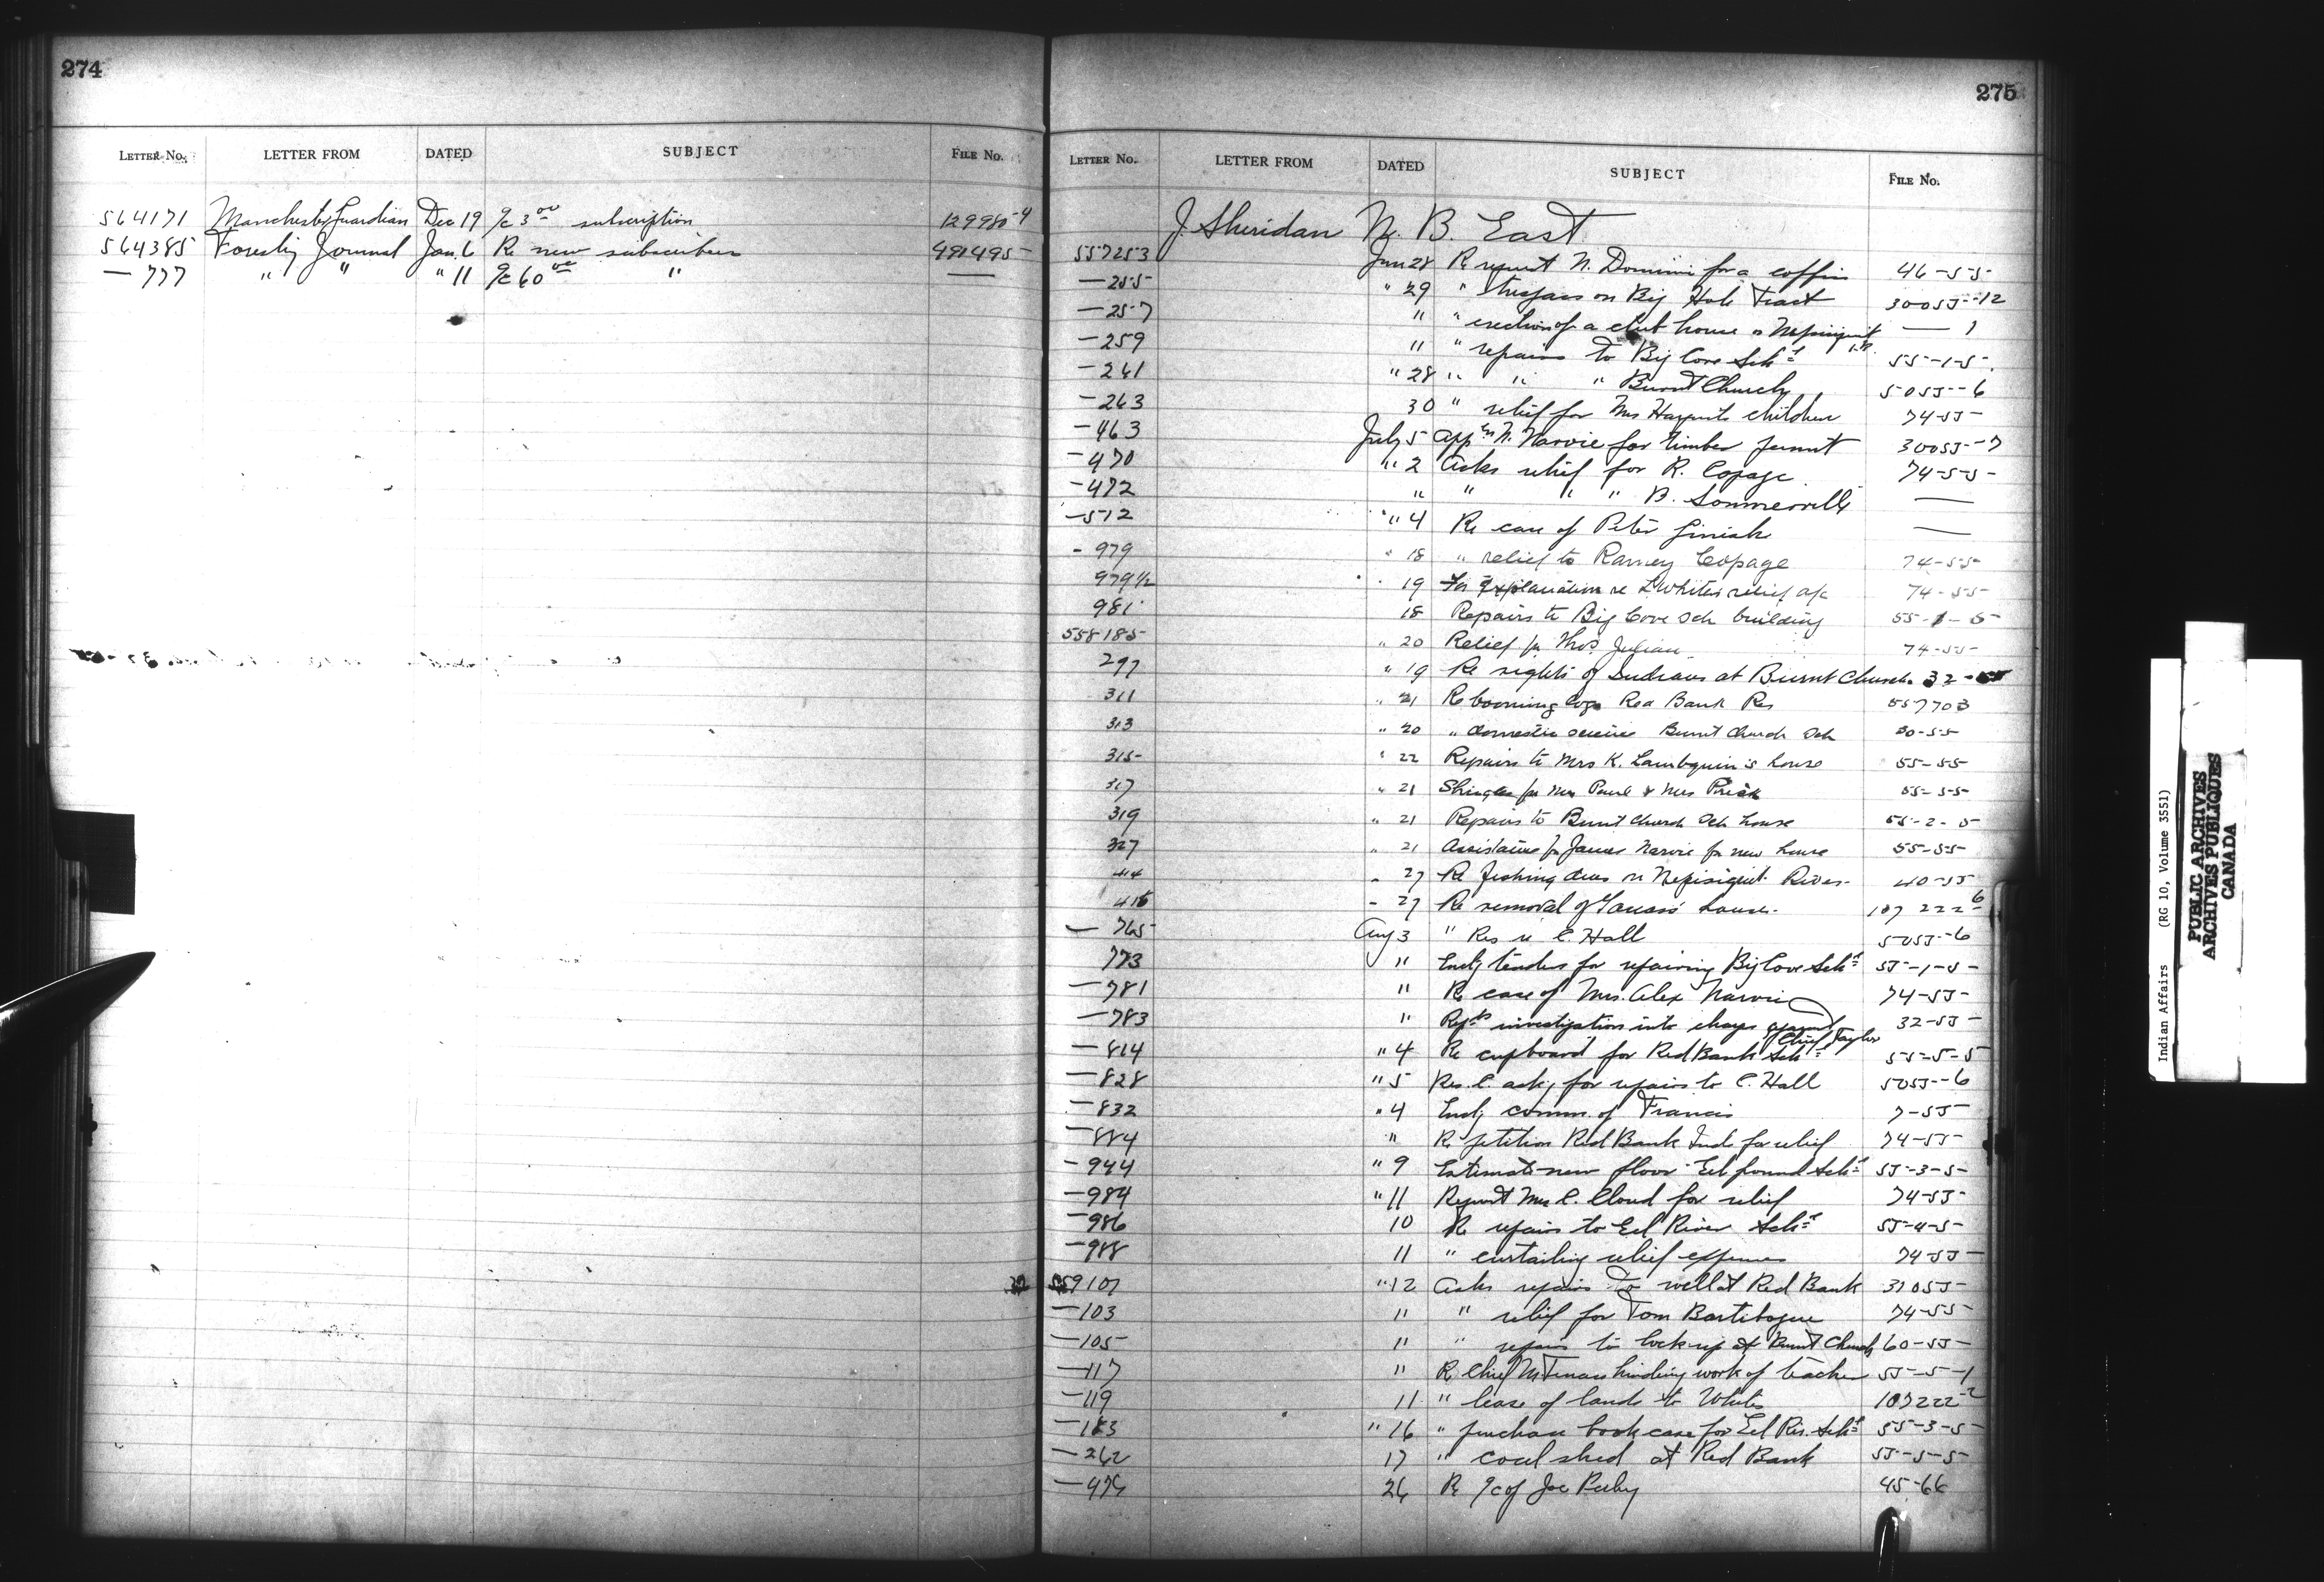 274
LETTER No. LETTER FROM DATED SUBJECT FILE No.
564171 Manchester Guardian Dec 19 a/c 3.00 subscription 129980-4
564385 Forestry Journal Jan. 6 Re new subscribers 491495
— 777 " " " 11 a/c 60.00 " —
275
LETTER No. LETTER FROM DATED SUBJECT FILE No.
J. Sheridan N. B. East
557253 Jun 28 Request N. Dominic for a coffin 46-55
—255 " 29 " trespass on Big Hole Tract 30055-12
—257 " " erection of a club house on Nepisiguit I.R. — 1
—259 " " repairs to Big Cove Schl 55-1-5
—261 " 28 " " " Burnt Church 5055-6
—263 30 " relief for Mrs children 74-55
—463 July 5 Appn N. Narvie for timber permit 30055-7
—470 " 2 Asks relief for R. Copage 74-55
—472 " " " " B. Sommerville —
—512 " 4 Re case of Peter Ginish —
- 979 " 18 " relief to Ramey Copage 74-55
979 1/2 " 19 For Explanation re L. Whites relief a/c 74-55
981 18 Repairs to Big Cove Sch building 55-1-5
558185 " 20 Relief for Thos. Julian 74-55
297 " 19 Re rights of Indians at Burnt Church 32-55
311 " 21 Re booming logs Red Bank Res 557703
313 " 20 " domestic science Burnt Church Sch 30-55
315 " 22 Repairs to Mrs K. Lambquin's house 55-55
317 " 21 Shingles for Mrs Paul & Mrs 55-55
319 " 21 Repairs to Burnt Church Sch house 55-2-5
327 " 21 Assistance for James Narvie for new house 55-55
414 " 27 Re fishing dues on Nepisiguit River 40-55
416 " 27 Re removal of house. 107 222-6
— 765 Aug 3 " Res re C. Hall 5055-6
773 " Encl tenders for repairing Big Cove Schl 55-1-5
—781 " Re case of Mrs. Alex Narvie 74-55
—783 " Repts investigation into charges against Chief Taylor 32-55
—814 " 4 Re cupboard for Red Bank Schl 55-5-5
—828 " 5 Res. C. askg for repairs to C. Hall 5055-6
—832 " 4 Encl comm. of Francis 7-55
—884 " Re petition Red Bank Inds for relief 74-55
—944 " 9 Estimate new floor Eel Ground Schl 55-3-5
—984 " 11 Request Mrs C. Cloud for relief 74-55
—986 10 Re repairs to Eel River Schl 55-4-5
—988 11 " curtailing relief expenses 74-55
559101 " 12 Asks repairs to well at Red Bank 31055
—103 " " relief for Tom Bartibogue 74-55
—105 " " repairs to lock-up at Burnt Church 60-55
—117 " Re Chief hindering work of teacher 55-5-1
—119 11 " lease of lands to Whites 107222-2
—183 " 16 " purchase book case for Eel Riv. Schl 55-3-5
—262 17 " coal shed at Red Bank 55-5-5
—474 26 Re a/c of Joe 45-66
Indian Affairs (RG 10, Volume 3551)
PUBLIC ARCHIVES
ARCHIVES PUBLIQUES
CANADA